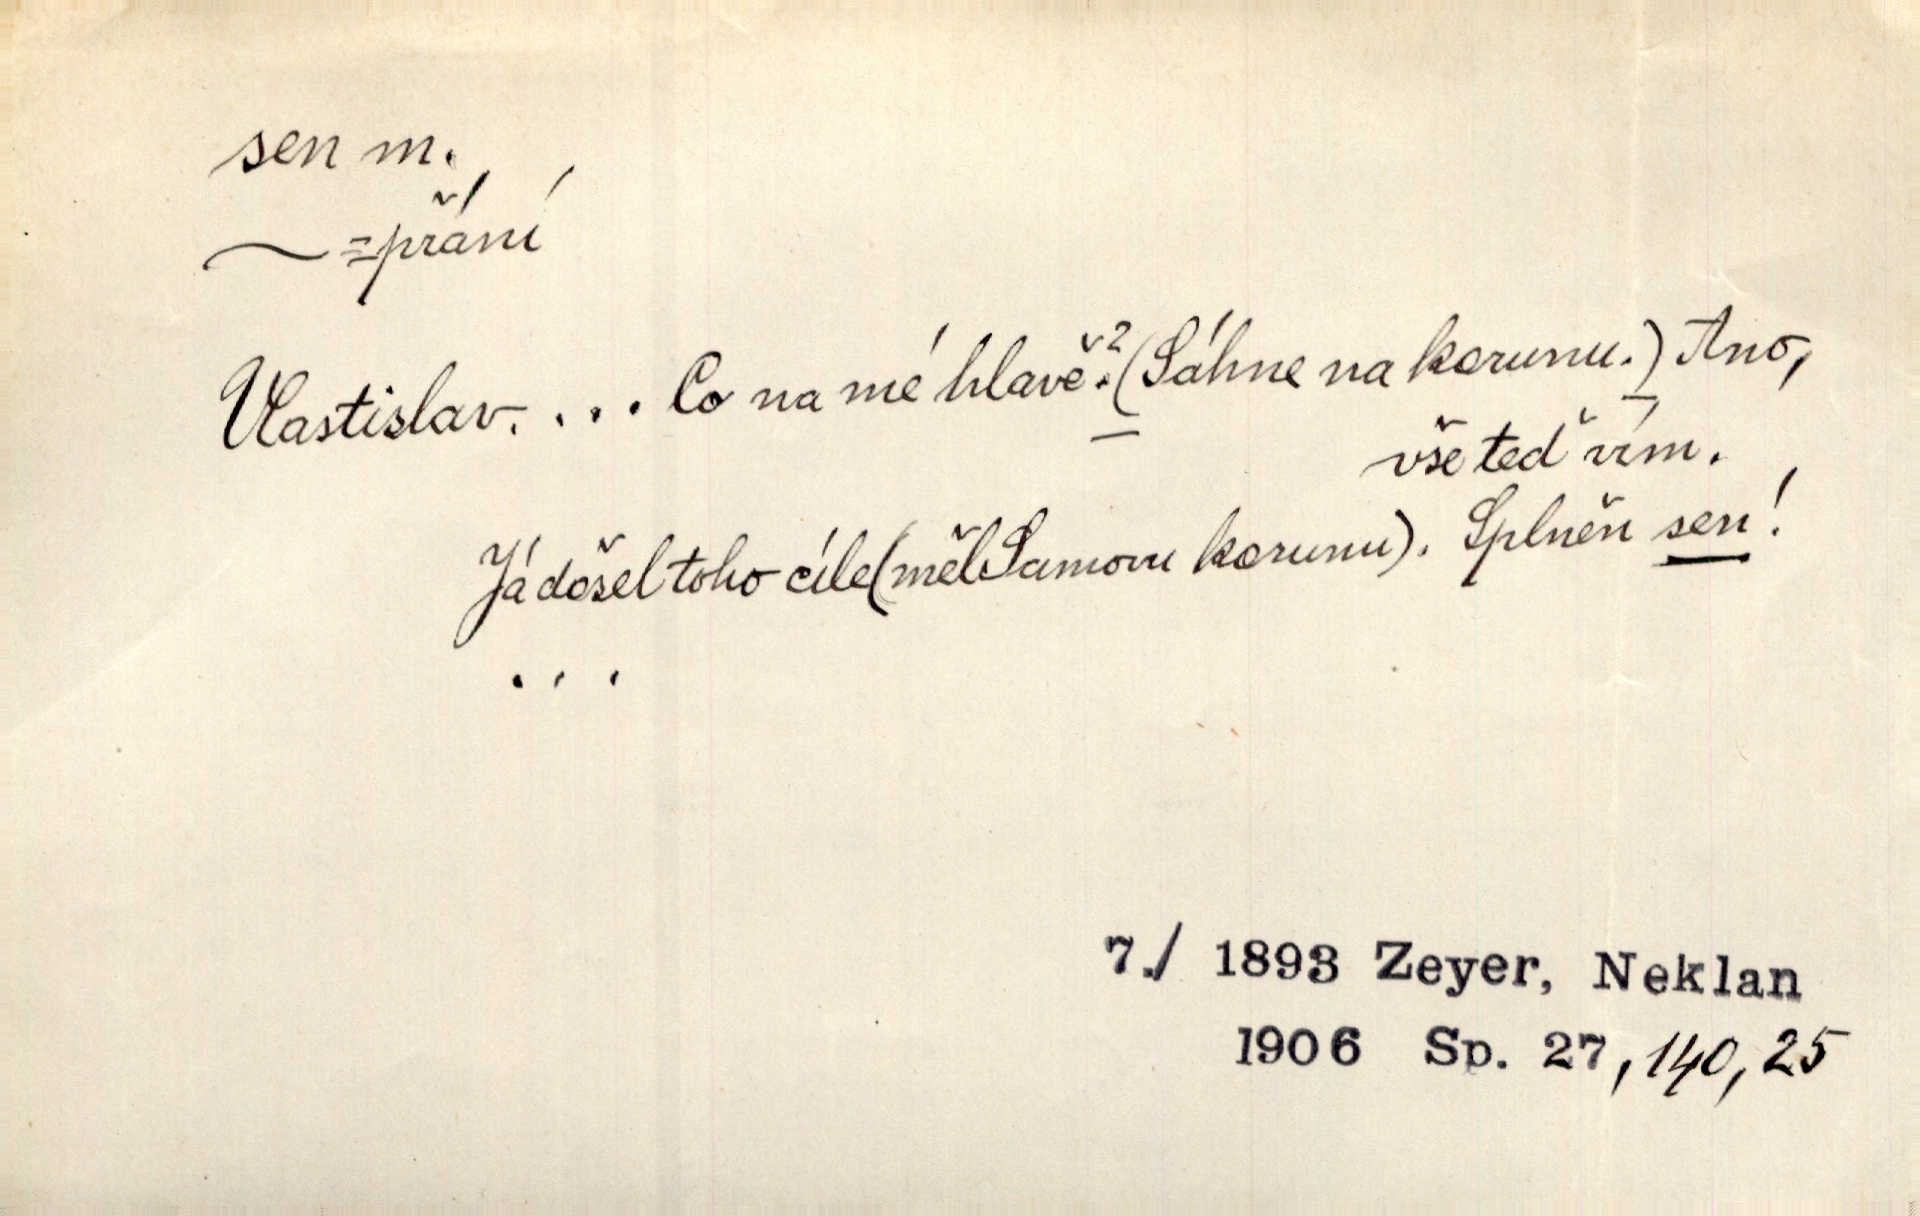 sen m.
~ = přání
Vlastislav. ... Co na mé hlavě? (Sáhne na korunu.) Ano,
vše teď vím.
Já došel toho cíle (měl Samovu korunu). Splněn sen!
...
7./ 1893 Zeyer, Neklan
1906 Sp. 27, 140, 25